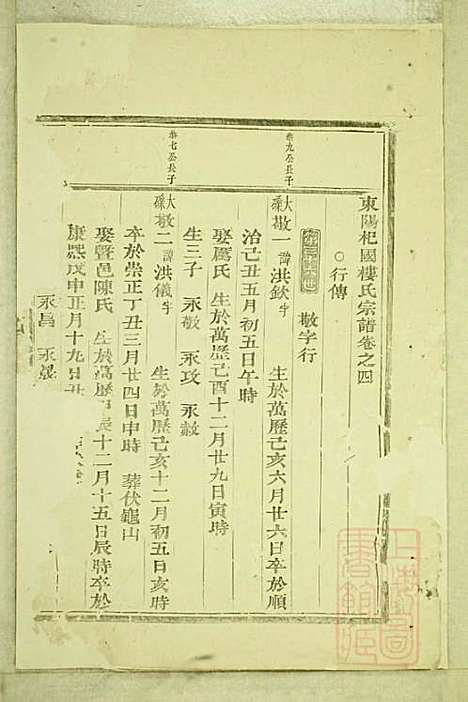 東陽杞國樓氏宗譜卷之四
○行傳
敬字行
恭九公長子
大厦敬一 諱洪欽字 生於萬歷己亥六月廿六日卒於順
治己丑五月初五日午時
娶厲氏 生於萬歷己酉十二月廿九日寅時
生三子 永敬 永攻 永
恭七公長子
敬二 諱洪儀字 生於萬歷己亥十二月初五日亥時
卒於崇正丁丑三月廿四日申時 葬伏龜山
娶暨邑陳氏 生於萬歷 辰十二月十五日辰時卒於
康熙戊申正月十九日丑
永昌 永晟